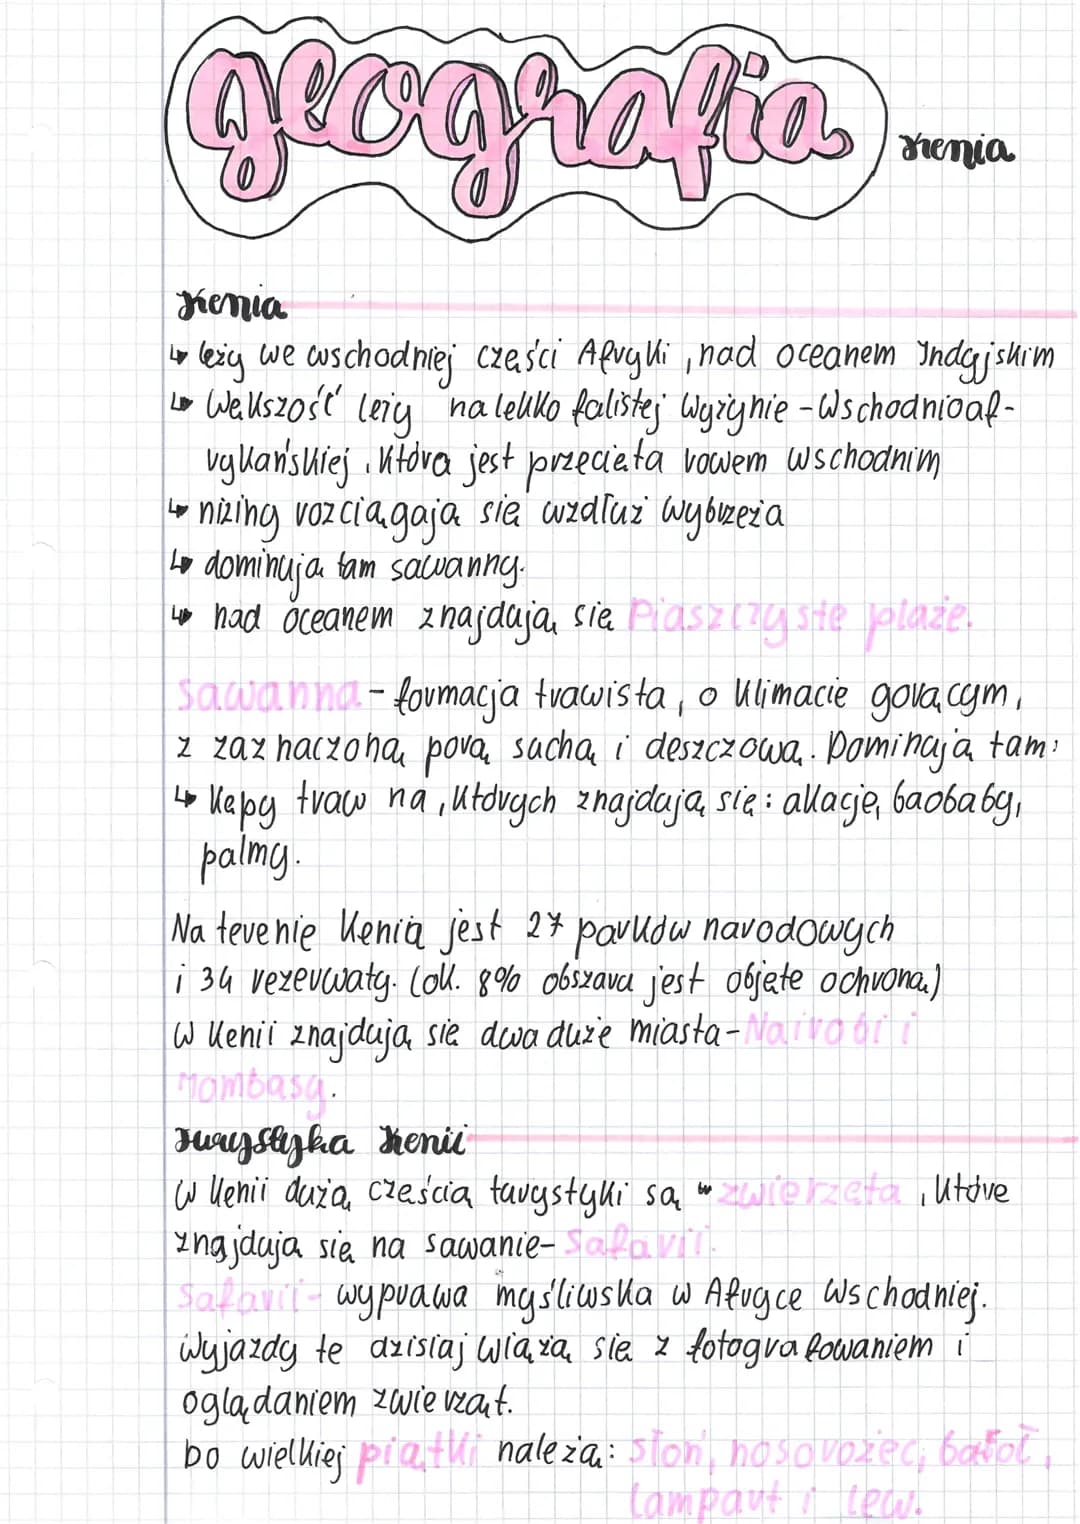 geografia
Kenia
Kenia
↳ leży we wschodniej części Afryki, nad oceanem Indyjskim
↳ Wekszość leży na lekko falistej Wyżynie - Wschodnioaf-
rykańskiej, która jest przecięta rowem wschodnim
↳ niziny rozciągają się wzdłuż wybrzeża
↳ dominują tam sawanny.
↳ nad oceanem znajdują się Piaszczyste plaże.
Sawanna - formacja trawista, o klimacie gorącym,
z zaznaczoną porą suchą i deszczową. Dominują tam:
↳ Kępy traw na, których znajdują się: akacje, baobaby,
palmy.
Na terenie Kenią jest 27 parków narodowych
i 34 rezerwaty. (ok. 8% obszaru jest objęte ochroną)
W Kenii znajdują się dwa duże miasta - Nairobi i
Mombasy.
Turystyka Kenii
W Kenii dużą częścią turystyki są zwierzęta, które
znajdują się na sawanie - Safarii.
Safarii - wyprawa myśliwska w Afryce Wschodniej.
Wyjazdy te dzisiaj wiążą się z fotografowaniem i
oglądaniem zwierząt.
Do wielkiej piątki należą: słoń, nosorożec, bafoł,
lampart i lew.